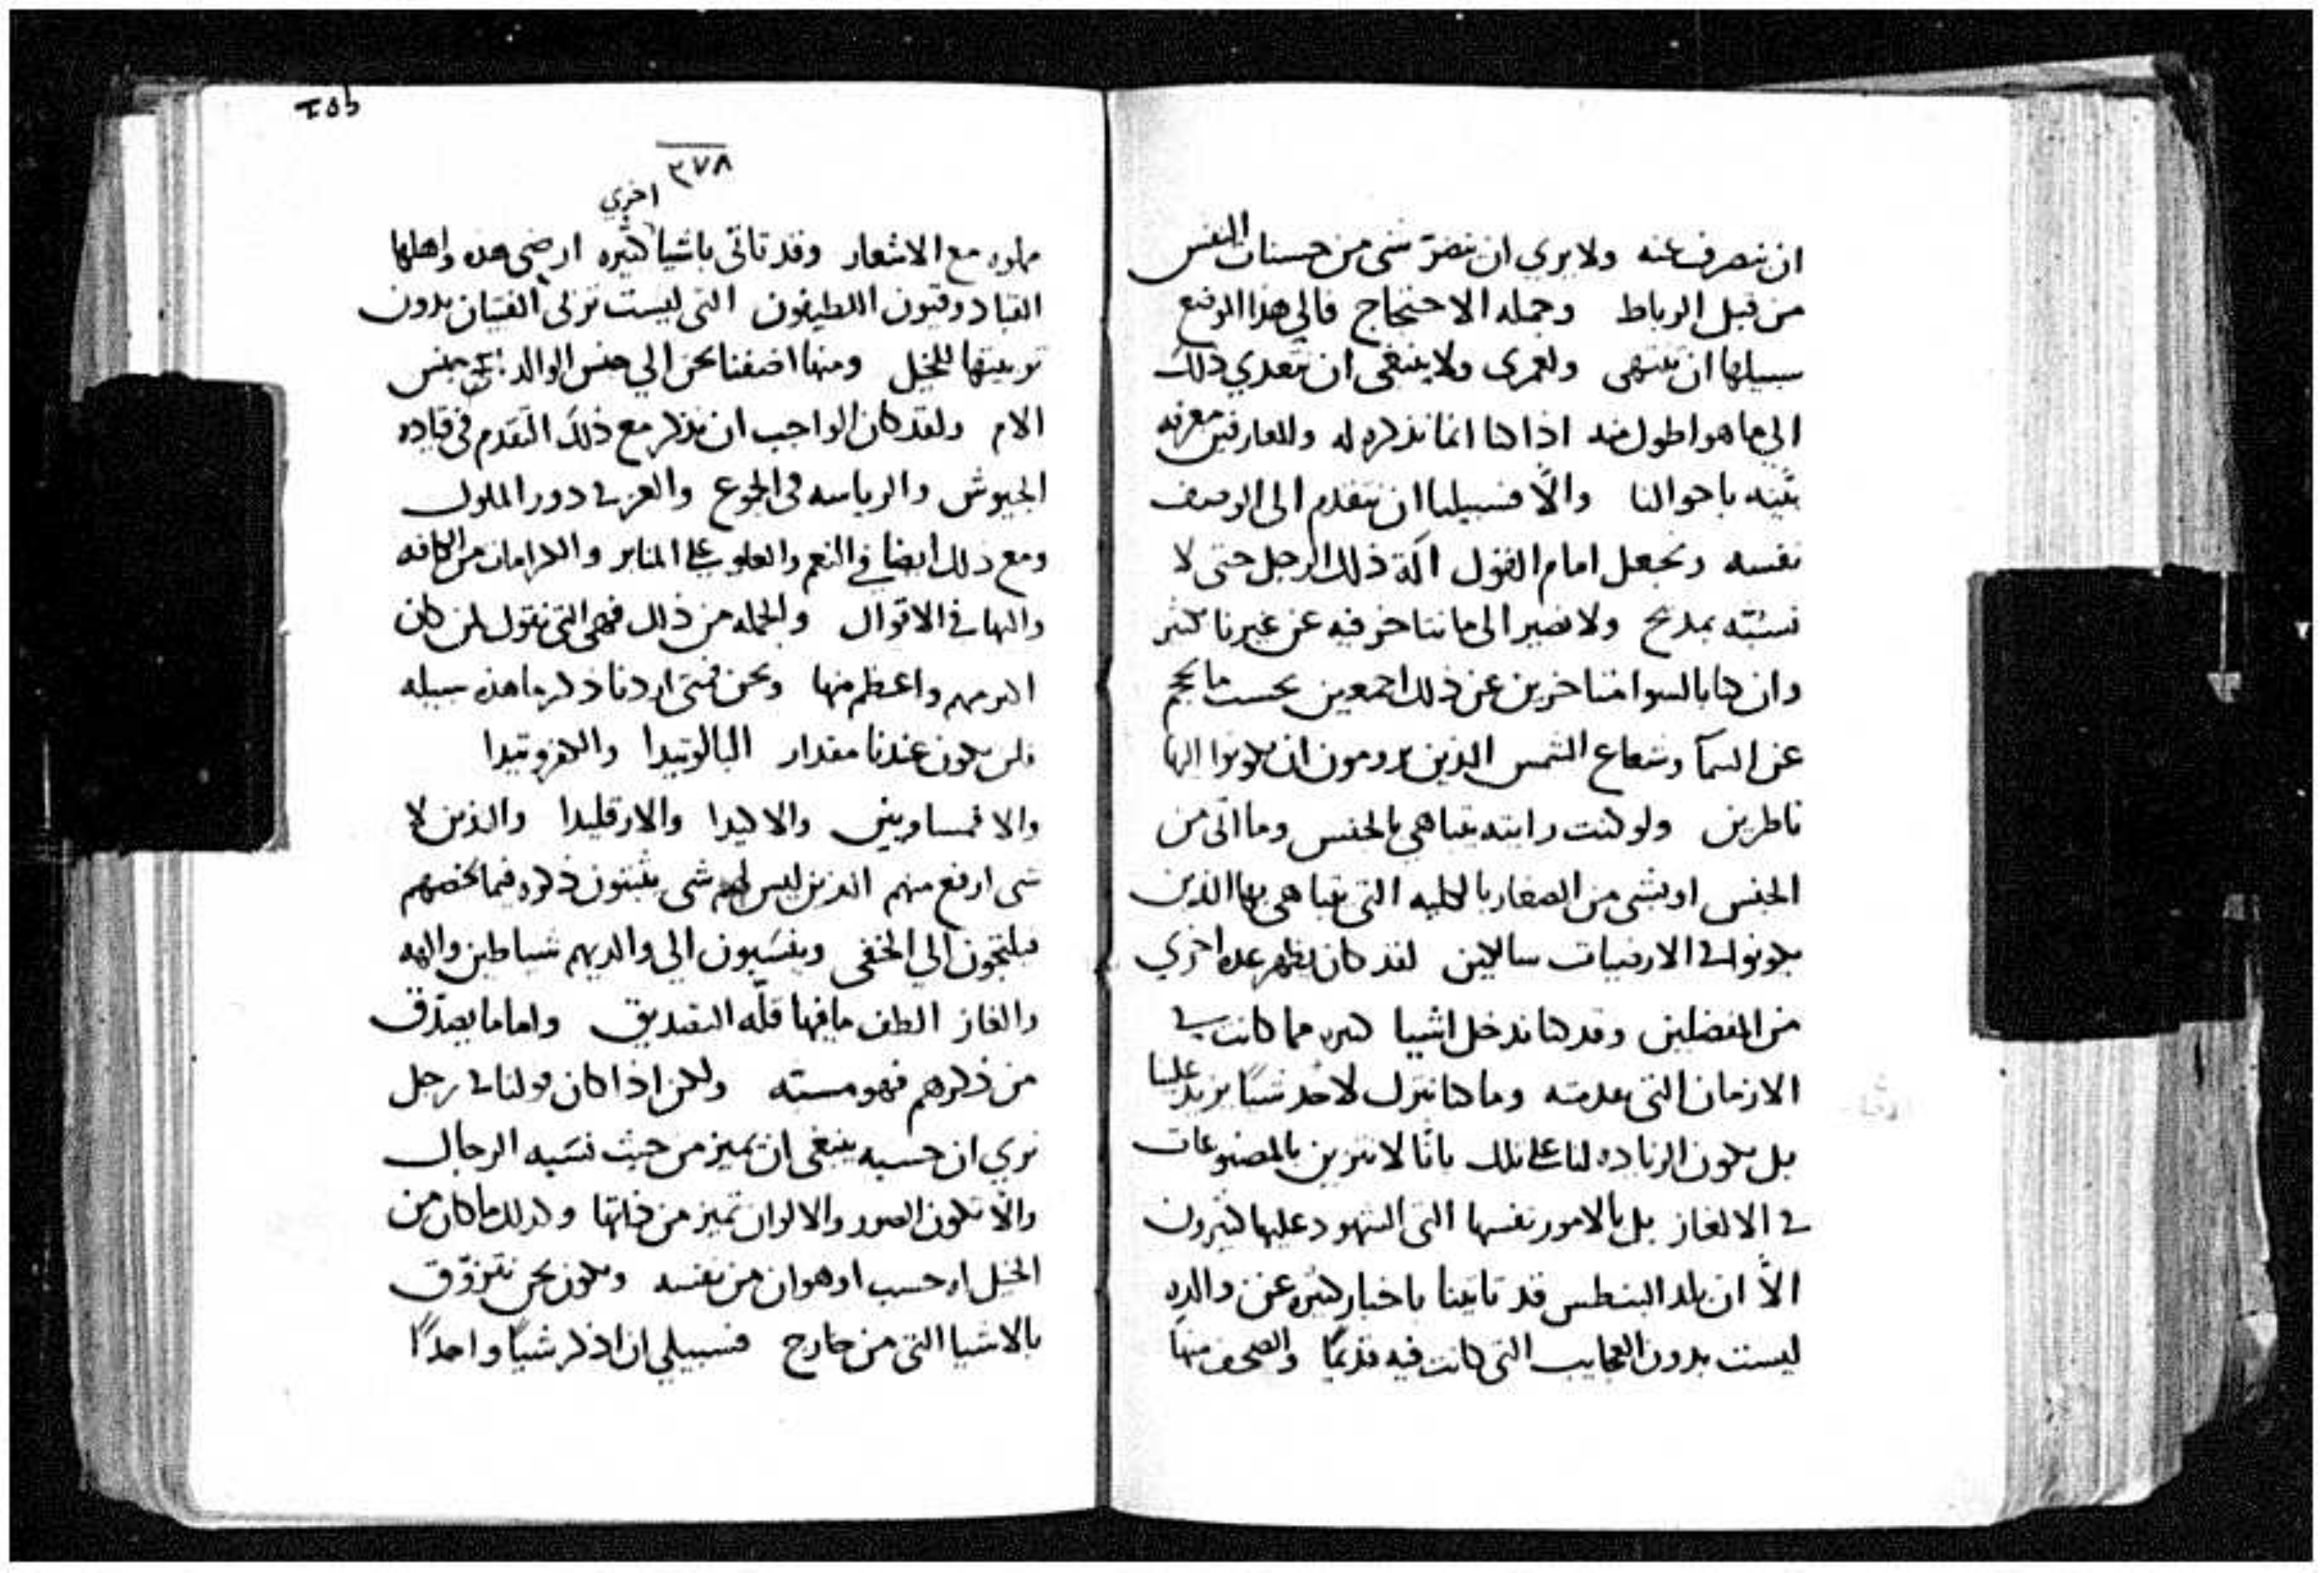 ان ننصرف عنه ولا يري ان نضرّ شي من حسنات النفس
من قبل الرباط وجمله الاحتجاج فالي هذا الوضع
سبيلها ان تنتهي ولعمري ولا ينبغي ان تتعدي ذلك
الي ما هو اطول منه اذا كنا انما نذكره له وللعارفين معرفه
بيّنه باحوالنا والّا فسبيلنا ان نتقدم الى الوصف
نفسه ونجعل امام القول آلة ذلك الرجل حتى لا
نسبته بمديح ولا نصير الى ما نتاخر فيه عن غيرنا كثير
وان كنا بالسوا متاخرين عن ذلك اجمعين بحسب ما
عن السمآ وشعاع الشمس الذين يرومون ان يكونوا اليها
ناظرين ولو كنت رايته يتباهي بالجنس وما اتي من
الجنس او بشي من الصغار بالكليه التي يتباهي بها الذين
يكونوا في الارضيات سالكين لقد كان يظهر عده اخري
من المفضلين وقد كنا ندخل اشيا كثيره مما كانت في
الازمان التي عدمته وما كنا نترك لاحد شيًا يزيد علينا
بل يكون الزياده لنا على تلك بانّا لا نتزين بالمصنوعات
في الالغاز بل بالامور نفسها التي الشهود عليها كثيرون
الّا ان بلد البنطس قد تاتينا باخبار كثيره عن والده
ليست بدون العجايب التي كانت فيه قديمًا والصحف منها
٢٧٨
اخري
مملوه مع الاشعار وقد تاتي باشيا كثيره ارضي هذه واهلها
القبادوقيون اللطيفون التي ليست تربي الفتيان بدون
تربيتها للخيل ومنها اضفنا نحن الي جنس الوالد جنس
الام ولقد كان الواجب ان نذكر مع ذلك التقدم في قياده
الجيوش والرياسه في الجموع والعز في دور الملوك
ومع ذلك ايضا في النعم والعلو على المنابر والكرامات من الكافه
والبها في الاقوال والجمله من ذلك فهي التي نقول لمن كان
اكرمهم واعظم منها ونحن فمتى اردنا ذكر ما هذه سبيله
فلن يكون عندنا مقدار البالوتيدا والككروتيدا
والالكيدا والارقليدا والذين لا
شي ارفع منهم الذين ليس لهم شي يثبتون ذكره فيما يخصهم
فيلتجون الي الخفي وينسبون الي والديهم شياطين والهه
والغاز الطف ما فيها قلّه التصديق واما ما يصدّق
من ذكرهم فهو مسبته ولكن اذا كان قولنا في رجل
نري ان حسبه ينبغي ان يميز من حيث نسبه الرجال
والّا تكون الصور والالوان تميز من ذاتها وكذلك ما كان من
الخيل له حسب او هوان من نفسه ونكون نحن نتزوّق
بالاشيا التي من خارج فسبيلي ان اذكر شيًا واحدًا